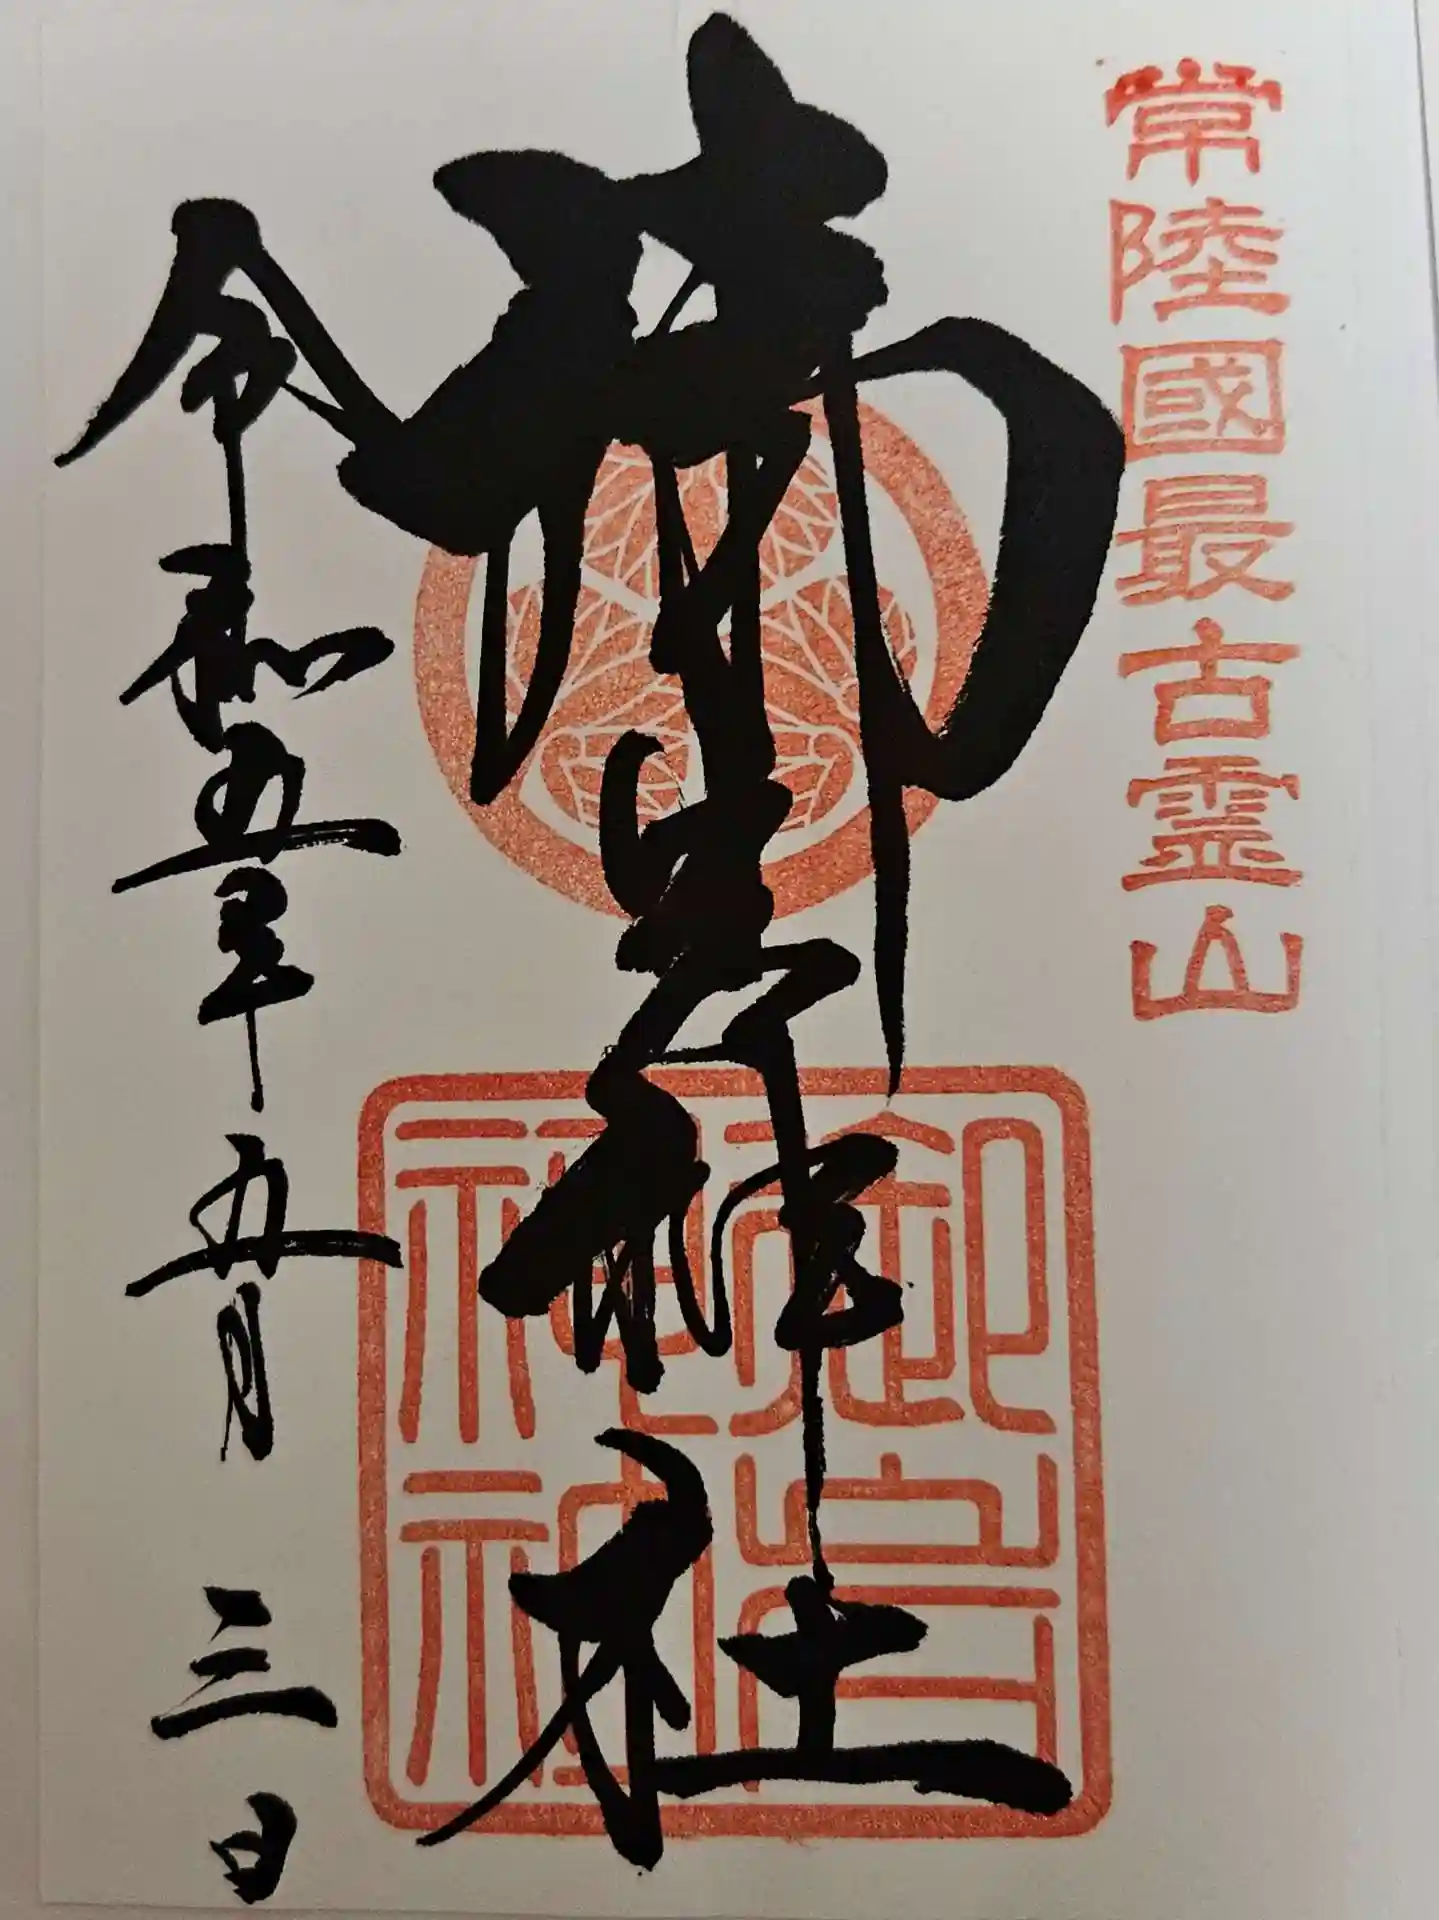 常陸國最古霊山
御岩神社
御岩
神社
令和五年五月三日